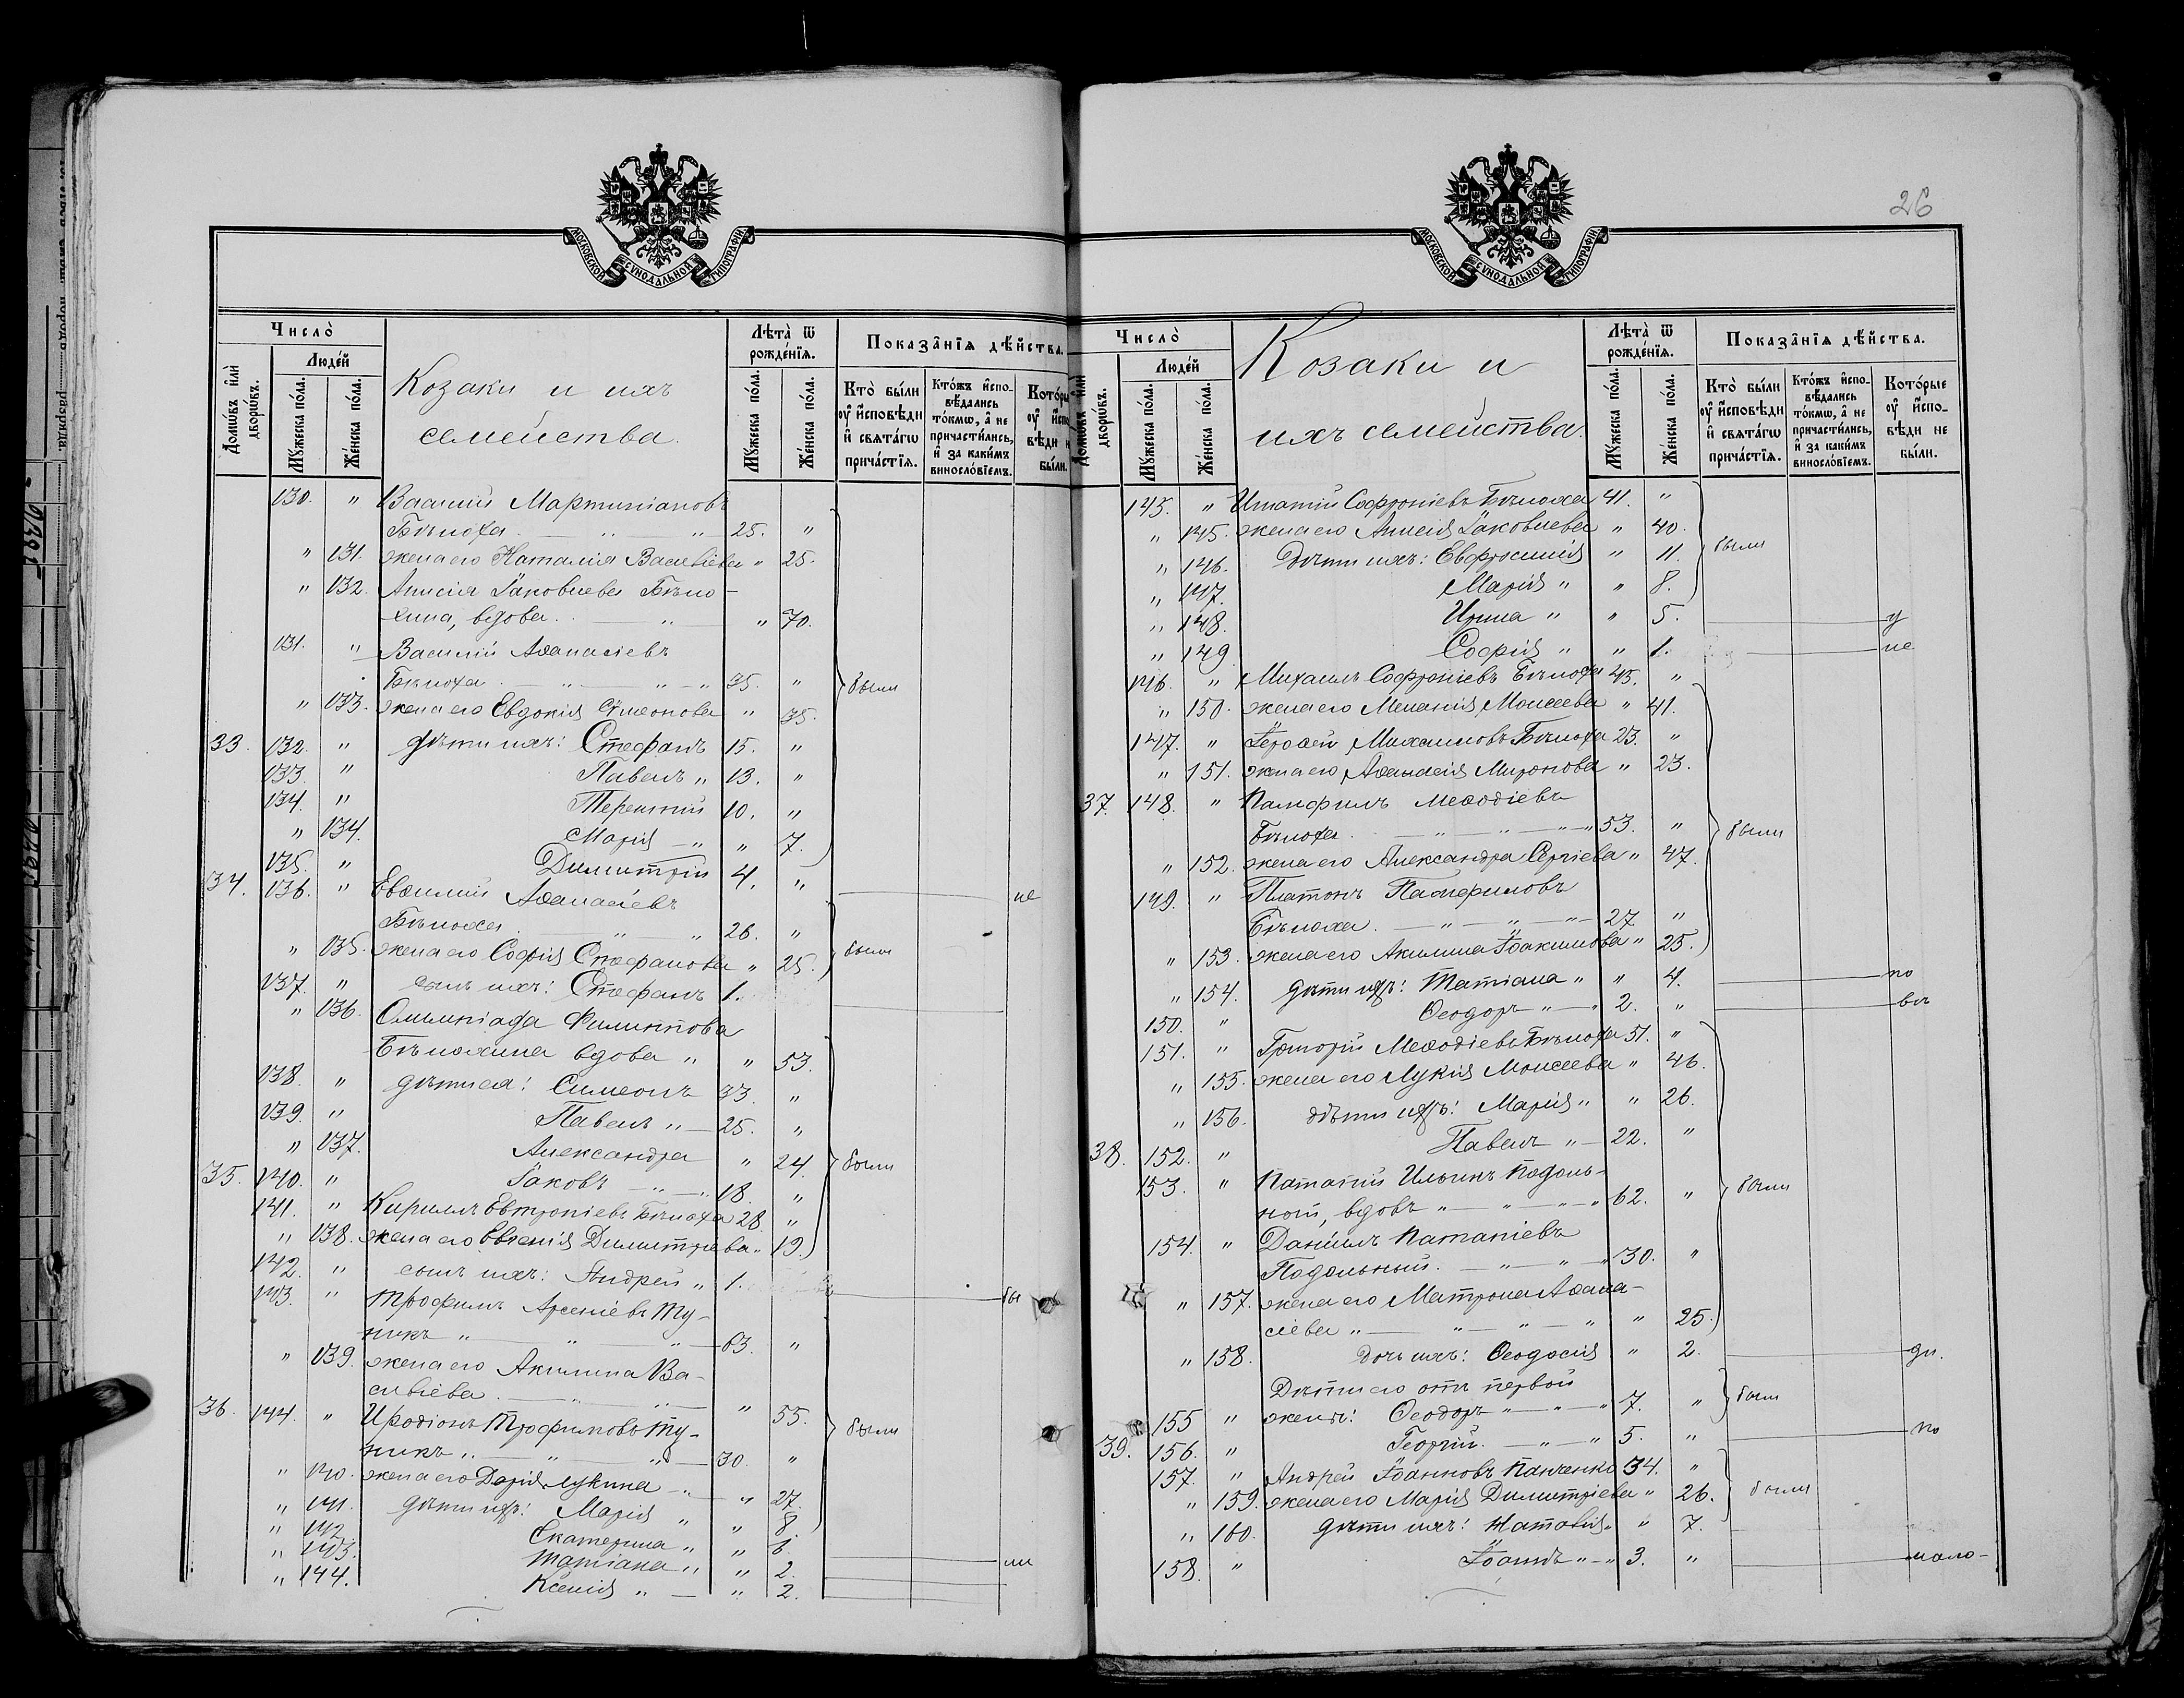 26
МОСКОВСКОЙ СѴНОДАЛЬНОЙ ТИПОГРАФІИ
Число̀
Домѡвъ и҆лѝ дворѡвъ.
Люде́й
Мꙋ́жеска по́ла.
Же́нска по́ла.
Козаки и ихъ
семейства.
Лѣта̀ ѿ рожде́нїѧ.
Мꙋ́жеска по́ла.
Же́нска по́ла.
Показа̑нїѧ дѣ́йства.
Кто̀ бы́ли ᲂу҆ и҆́сповѣди и҆ свѧта́гѡ прича́стїѧ.
Кто́жъ и҆сповѣ́дались то́кмѡ, а҆ не причасти́лись, и҆ за каки́мъ винослове́мъ.
Кото́ры ᲂу҆ и҆спо вѣди н бы́ли.
130. " Василій Мартиніановъ
Бѣлоха " " 25. "
" 131. жена его Наталія Василіева " 25.
" 132. Анисія Іаковлева Бѣло-
хина, вдова. " " 70.
131. " Василій Аѳанасіевъ
Бѣлоха. " " " 35. " были
" 133. жена его Евдокія Сѷмеонова " 35.
33. 132. " дѣти ихъ: Стефанъ 15. "
133. " Павелъ " 13. "
134. " Терентій 10. "
" 134. Марія " " 7.
135. " Димитрій 4. " не
34. 136. " Евѳимій Аѳанасіевъ
Бѣлоха. " " 26. "
" 135. жена его Софія Стефанова " 25. были
137. " сынъ ихъ: Стефанъ 1.
" 136. Олимпіада Филиппова
Бѣлохина вдова " " 53.
138. " дѣти ея: Симеонъ 33. "
139. " Павелъ " 25. "
" 137. Александра " 24. были
35. 140. " Іаковъ " 18. "
141. " Кириллъ Евтропіевъ Бѣлоха 28 "
" 138. жена его Евгенія Димитріева " 19.
142. " сынъ ихъ: Андрей " 1. бы
143. " Трофимъ Арсеніевъ Ту-
никъ " " " 63. "
" 139. жена его Акилина Ва-
силіева. " " " 55.
36. 144. " Иродіонъ Трофимовъ Ту- были
никъ " " " 30. "
" 140. жена его Дарія Лукина " " 27.
" 141. дѣти ихъ: Марія " " 8.
" 142. Екатерина " " 6.
" 143. Татіана " " 2. ли
" 144. Ксенія " " 2.
МОСКОВСКОЙ СѴНОДАЛЬНОЙ ТИПОГРАФІИ
Число̀
Домѡвъ и҆лѝ дворѡвъ.
Люде́й
Мꙋ́жеска по́ла.
Же́нска по́ла.
Козаки и
ихъ семейства.
Лѣта̀ ѿ рожде́нїѧ.
Мꙋ́жеска по́ла.
Же́нска по́ла.
Показа̑нїѧ дѣ́йства.
Кто̀ бы́ли ᲂу҆ и҆́сповѣди и҆ свѧта́гѡ прича́стїѧ.
Кто́жъ и҆сповѣ́дались то́кмѡ, а҆ не причасти́лись, и҆ за каки́мъ винослові́емъ.
Кото́рые ᲂу҆ и҆́сповѣди не бы́ли.
145. " Ипатій Софроніевъ Бѣлоха 41. "
" 145. жена его Анисія Іаковлева " 40.
" 146. Дѣти ихъ: Евфросинія " 11. были
" 147. Марія " " 8.
" 148. Ирина " " 5. у
" 149 Софія " " 1. не
146. " Михаилъ Софроніевъ Бѣлоха 45. "
" 150. жена его Меланія Моисеева " 41.
147. " Іероѳей Михаиловъ Бѣлоха 23. "
" 151. жена его Аѳанасія Миронова " 23.
37. 148. " Памфилъ Меѳодіевъ
Бѣлоха. " " " 53. " были
" 152. жена его Александра Сергіева " 47.
149. " Платонъ Памфиловъ
Бѣлоха. " " 27. "
" 153. жена его Акилина Іоакимова " 25.
" 154. дѣти ихъ: Татіана " " 4. по
150. " Ѳеодоръ " " 2. " вѣ
151. " Григорій Меѳодіевъ Бѣлоха 51. "
" 155. жена его Лукія Моисеева " 46.
" 156. дѣти ихъ: Марія " " 26.
38. 152. " Павелъ " 22. "
153. " Ипатій Ильинъ Подоль-
ный, вдовъ " " " 62. " были
154. " Даніилъ Ипатіевъ
Подольный. " " " 30. "
" 157. жена его Матрона Аѳана-
сіева " " " " " 25.
" 158. дочь ихъ: Ѳеодосія " 2. ди.
Дѣти его отъ первой
155 " жены: Ѳеодоръ " " " 7. " были
39. 156. " Георгій. " " 5. " по
157. " Андрей Іоанновъ Панченко 34. "
" 159. жена его Марія Димитріева " 26. были
" 160. дѣти ихъ: Наталія " " 7.
158. " Іоаннъ " " 3. " мало-